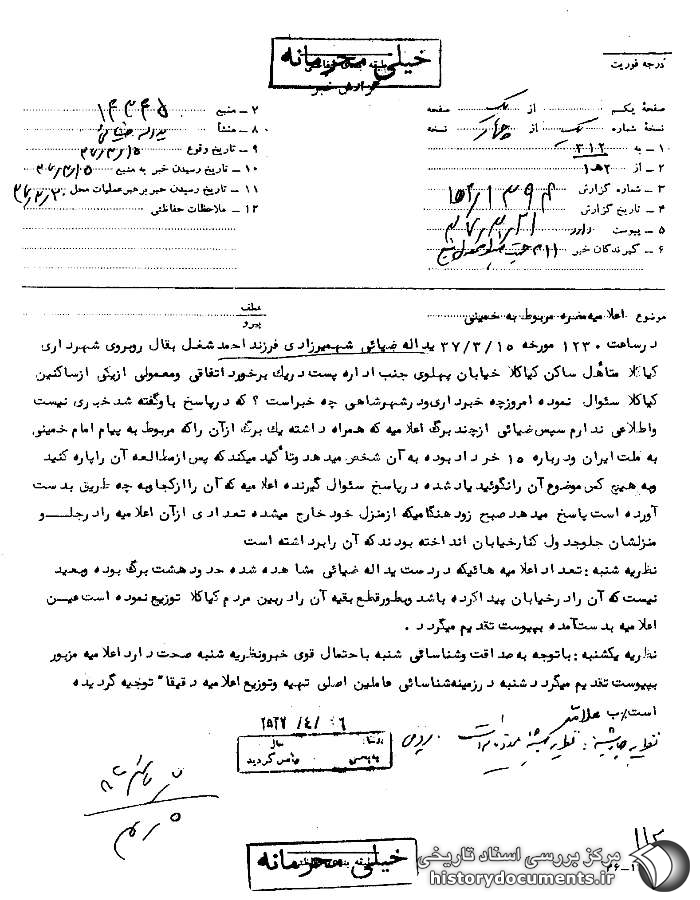 خیلی محرمانه
طبقه بندی حفاظتی
گزارش خبر
درجه فوریت
صفحه یکم از یک صفحه
نسخه شماره یک از چهار نسخه
۱ ـ به ۳۱۲
۲ ـ از ۲هـ۱
۳ ـ شماره گزارش
۴ ـ تاریخ گزارش ۳۷/۳/۲۱
۵ ـ پیوست دارد
۶ ـ گیرندگان خبر
۷ ـ منبع ۱۴۳۴۵
۸ ـ منشأ یداله ضیائی
۹ ـ تاریخ وقوع ۳۷/۳/۱۵
۱۰ ـ تاریخ رسیدن خبر به منبع ۳۷/۳/۱۵
۱۱ ـ تاریخ رسیدن خبر برهبر عملیات محل ۳۷/۳/۲۰
۱۲ ـ ملاحظات حفاظتی
موضوع اعلامیه مضره مربوط به خمینی
عطف
پیرو
درساعت ۱۲۳۰ مورخه ۳۷/۳/۱۵ یداله ضیائی شهمیرزادی فرزند احمد شغل بقال روبروی شهرداری
کیاکلا متأهل ساکن کیاکلا خیابان پهلوی جنب اداره پست دریک برخورد اتفاقی ومعمولی ازیکی ازساکنین
کیاکلا سئوال نموده امروزچه خبرداری ودرشهرشاهی چه خبراست ؟ که درپاسخ باوگفته شد خبری نیست
واطلاعی ندارم سپس ضیائی ازچند برگ اعلامیه که همراه داشته یک برگ ازآن راکه مربوط به پیام امام خمینی
به ملت ایران ودرباره ۱۵ خرداد بوده به آن شخص میدهد وتأکید میکند که پس ازمطالعه آن راپاره کنید
وبه هیچ کس موضوع آن رانگوئید یاد شده درپاسخ سئوال گیرنده اعلامیه که آن راازکجا وبه چه طریق بدست
آورده است پاسخ میدهد صبح زود هنگامیکه ازمنزل خود خارج میشده تعدادی ازآن اعلامیه رادرجلـــو
منزلشان جلوجدول کنارخیابان انداخته بودند که آن رابرداشته است
نظریه شنبه : تعداد اعلامیه هائیکه دردست یداله ضیائی مشاهده شده حدود هشت برگ بوده وبعید
نیست که آن رادرخیابان پیداکرده باشد وبطورقطع بقیه آن رادربین مردم کیاکلا توزیع نموده است عیـــن
اعلامیه بدست آمده بپیوست تقدیم میگردد .
نظریه یکشنبه : باتوجه به صداقت وشناسائی شنبه باحتمال قوی خبرونظریه شنبه صحت دارد اعلامیه مزبور
بپیوست تقدیم میگردد شنبه درزمینه شناسائی عاملین اصلی تهیه وتوزیع اعلامیه دقیقا" توجیه گردیده
است/ب علامتی
نظریه چهارشنبه : نظریه یکشنبه مورد تائید است
۲۵۳۷ /۴/ ۰۶
سال
بایگانی گردید
۱۱۳
خیلی محرمانه
طبقه بندی حفاظتی
مرکز بررسی اسناد تاریخی
historydocuments.ir